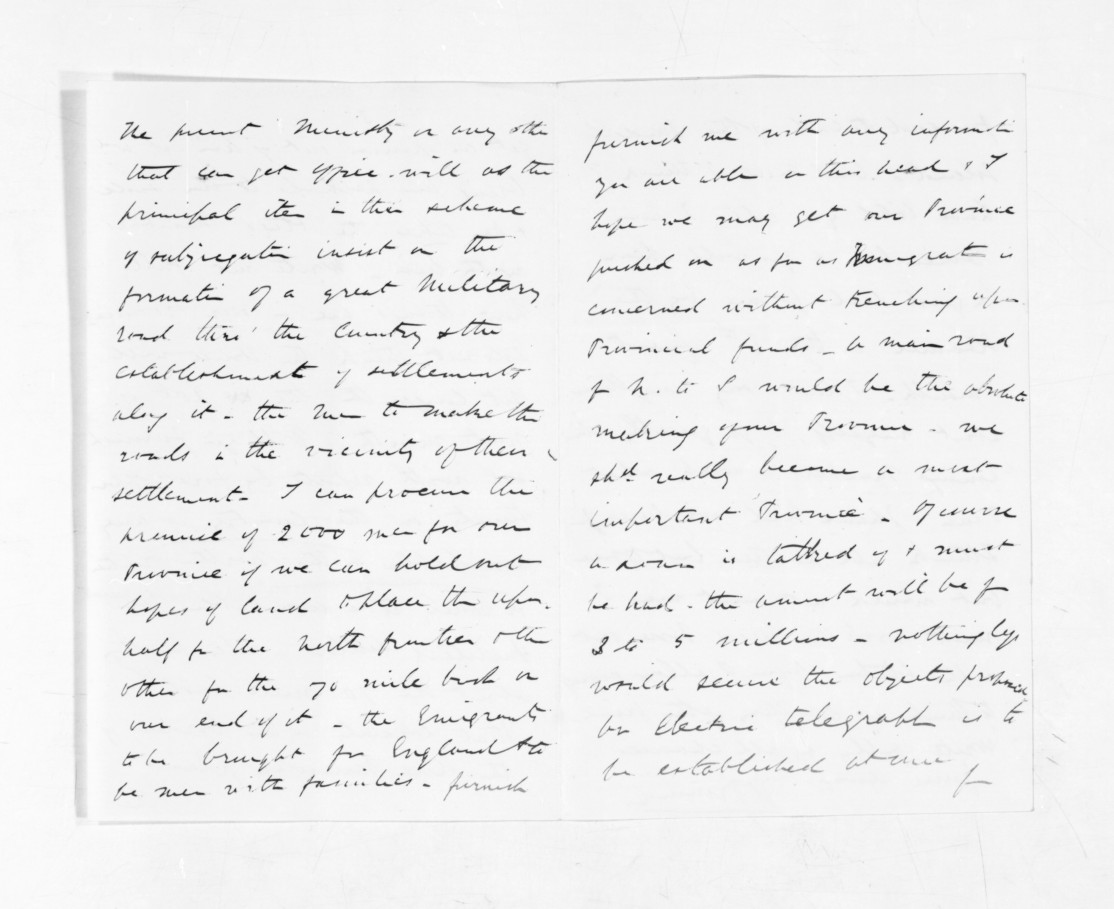 The present Ministry or any other
that can get office will as the
principal item in their scheme
of subjugation insist on the
formation of a great Military
road thro' the Country & the
establishment of settlements
along it - the men to make the
roads in the vicinity of their
settlement - I can procure the
promise of 2000 men for our
Province if we can hold out
hopes of land to place them upon.
half for the North frontier & the
other for the 70 mile bush on
our end of it - the Emigrants
to be brought from England & to
be men with families - furnish
furnish me with any informati
you are able on this head & I
hope we may get our Province
pushed on as far as Immigrat is
concerned without trenching upon
Provincial funds - a main road
fr N. to S would be the absolute
making of our Province - we
shd. really become a most
important Province - Of course
a Loan is talked of & must
be had - the amount will be fr
3 to 5 millions - nothing less
would secure the objects proposed
an Electric telegraph is to
be established at once
fr